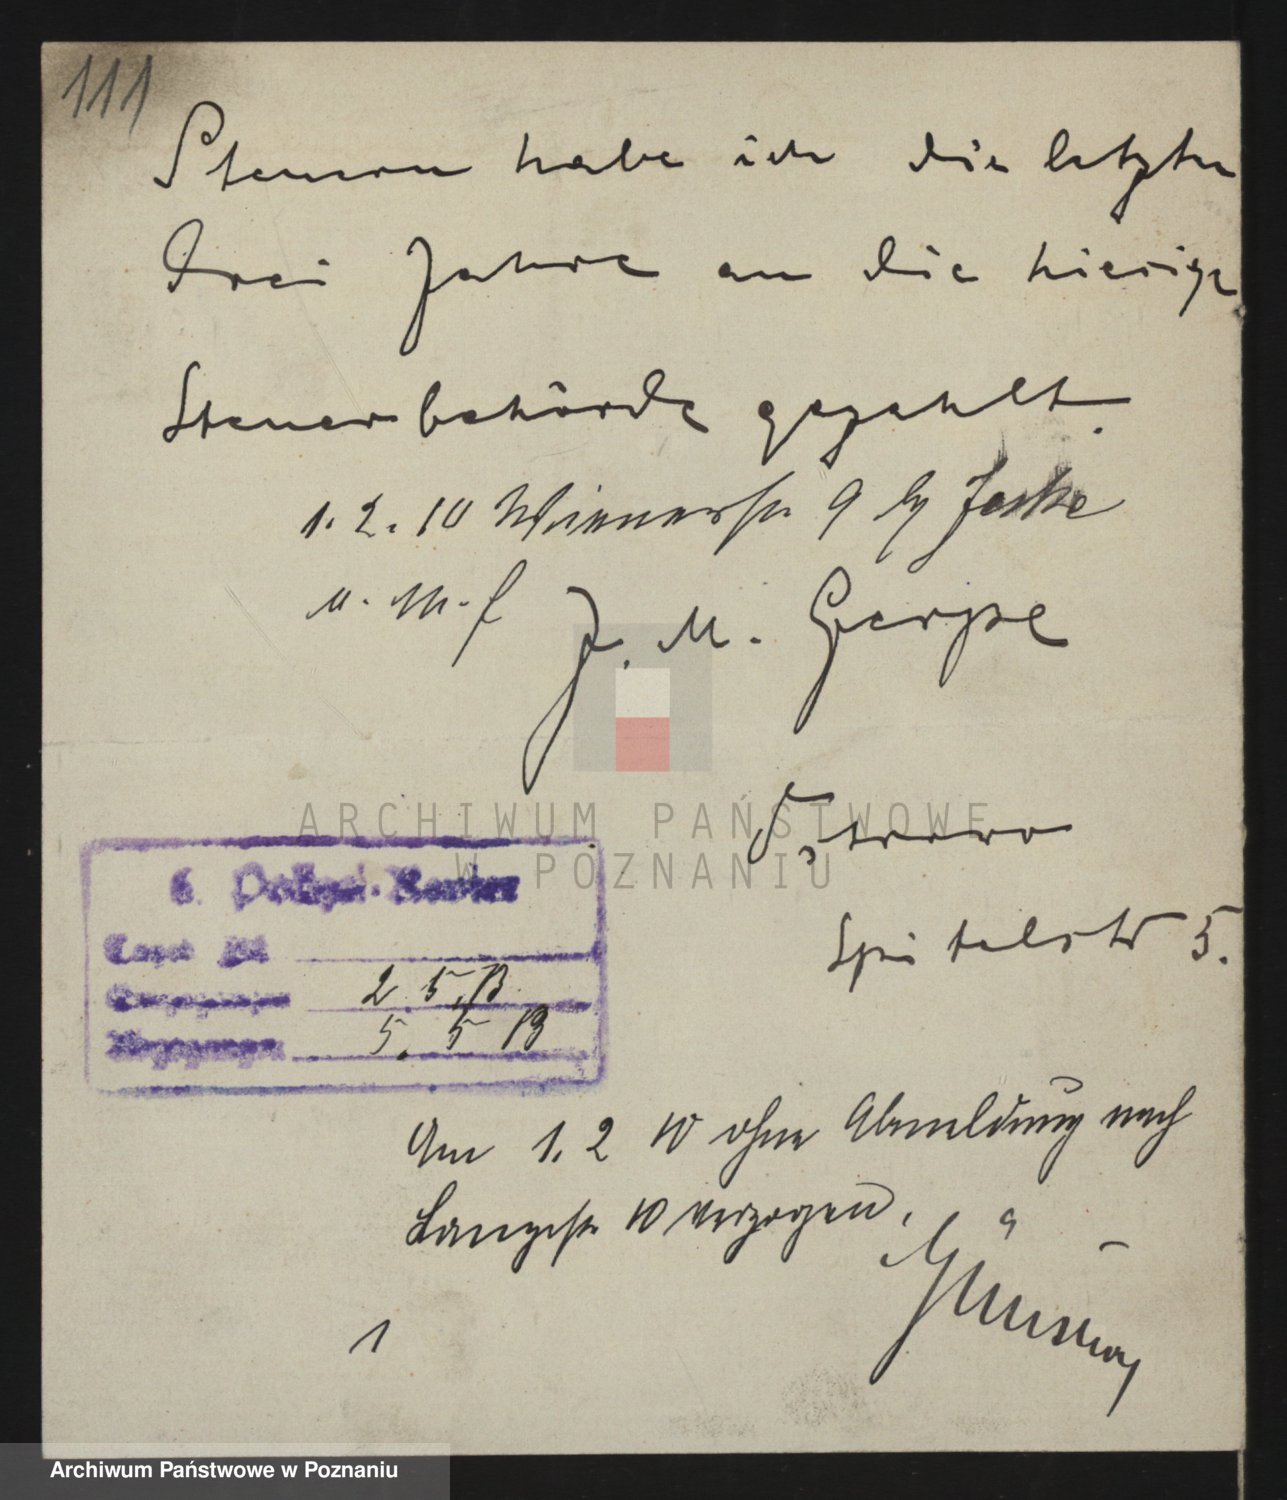 111
Steuern habe ich die letzten
drei Jahre an die hiesige
Steuerbehörde gezahlt.
1. 2. 10 Wienerstr 9 Jeske
u. M. f
J. M. Gerpe
ARCHIWUM PAŃSTWOWE
W POZNANIU
Ostrowo
Spitalstr 5.
6. Polizei-Revier
2. 5. 13.
5. 5 13
Am 1. 2 10 ohne Abmeldung nach
Langestr 10 verzogen.
1
Archiwum Państwowe w Poznaniu